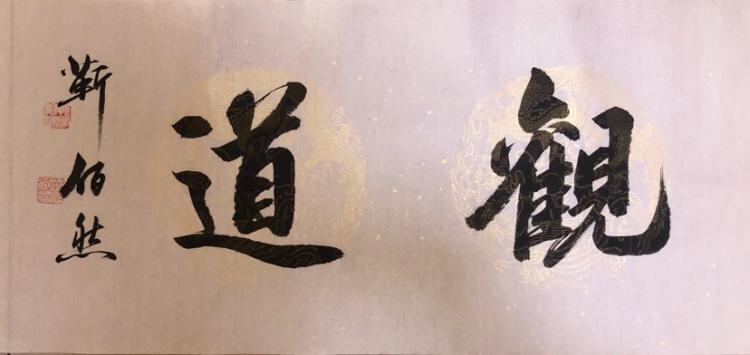 觀道
靳伯然